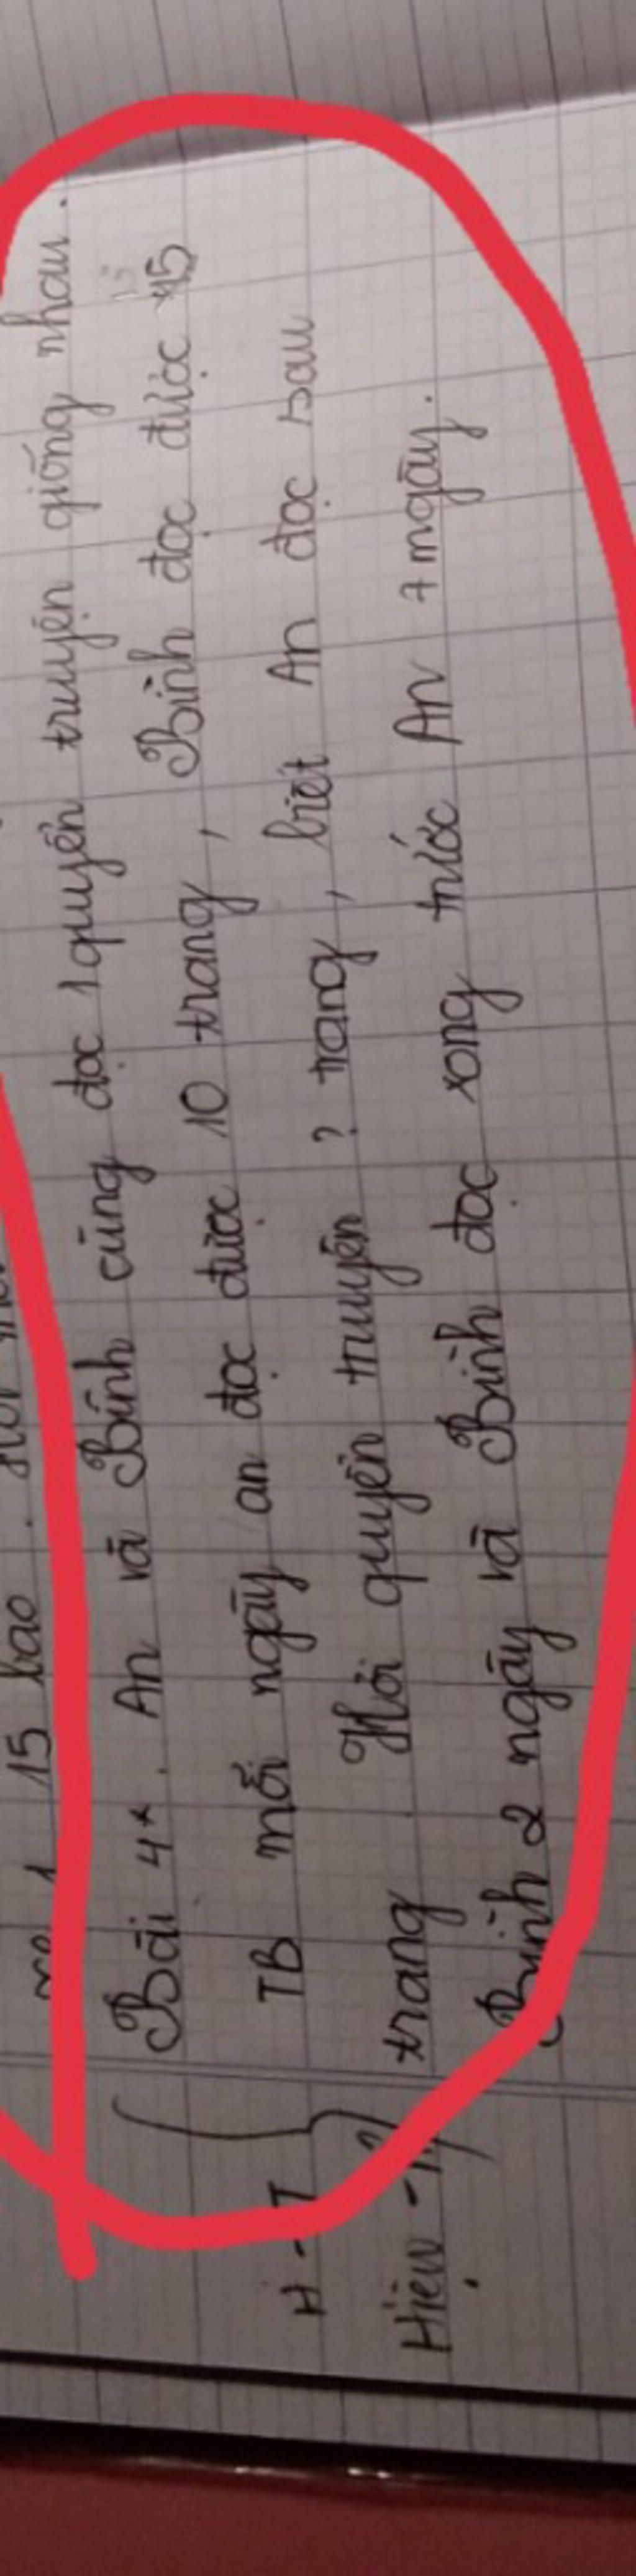 15 bao.
Bài 4*. An và Bình cùng đọc 1 quyển truyện giống nhau.
TB mỗi ngày an đọc được 10 trang, Bình đọc được 15
trang. Hỏi quyển truyện ? trang, biết An đọc sau
Bình 2 ngày và Bình đọc xong trước An 7 ngày.
H - T
Hiệu - Tỷ